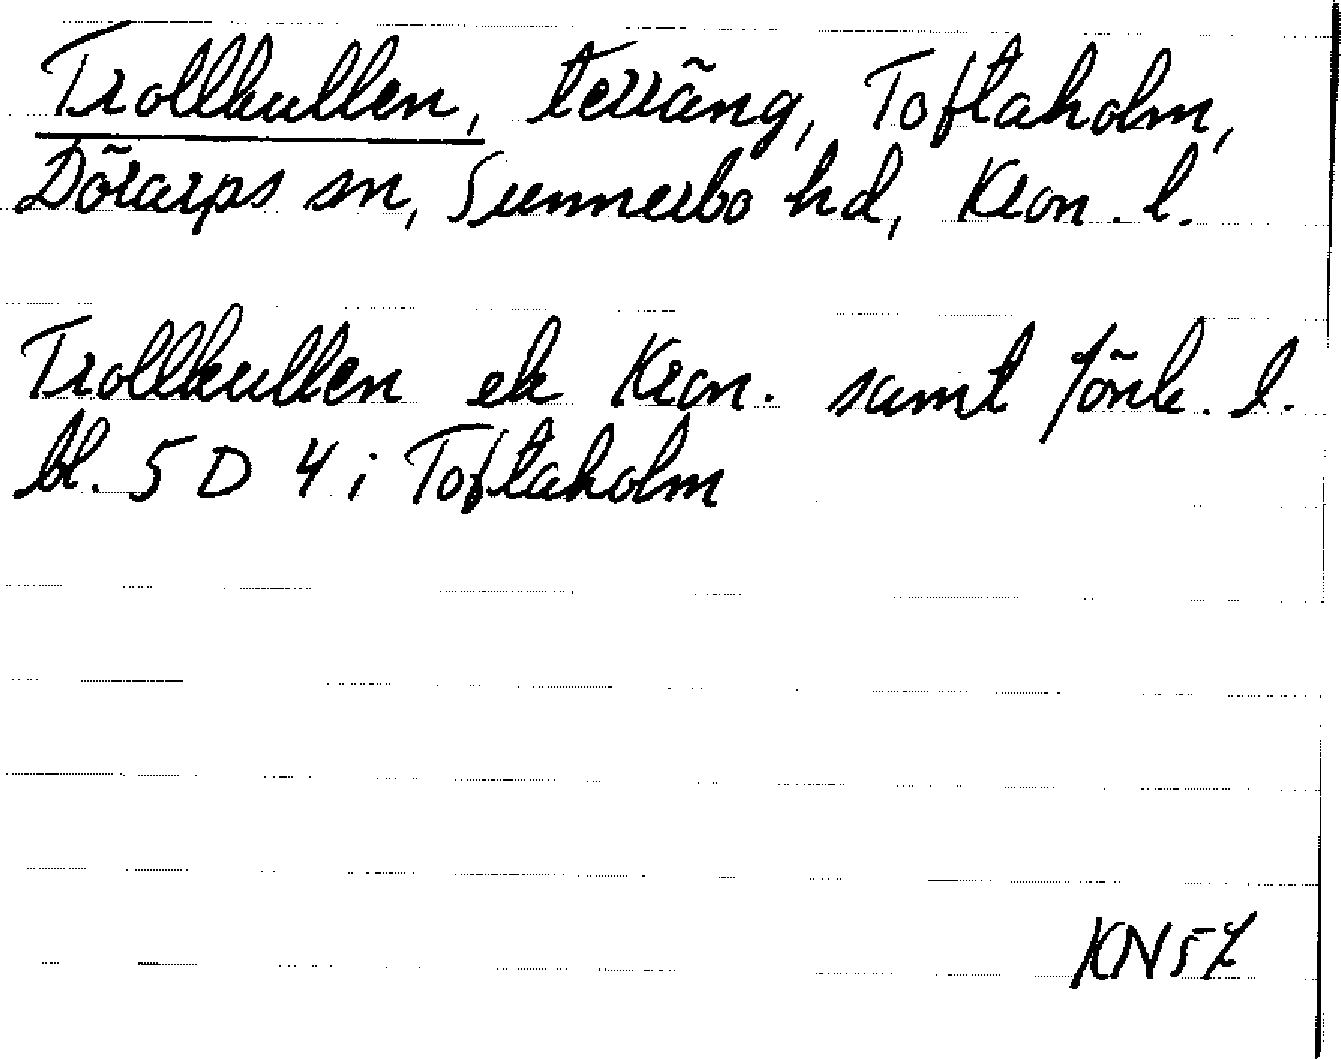 Trollkullen, terräng, Toftaholm,
Dörarps sn, Sunnerbo hd, Kron. l.
Trollkullen ek Kron. samt Jönk. l.
bl. 5 D 4 i Toftaholm